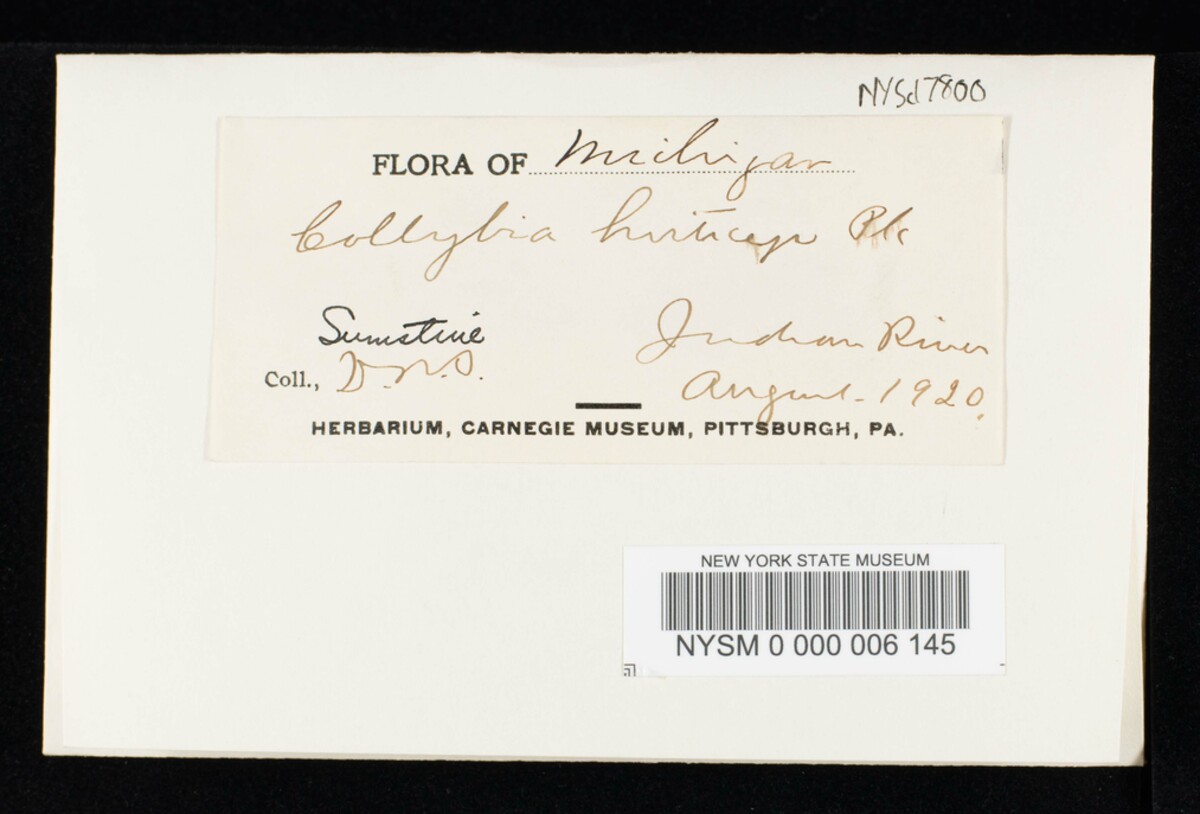 NYSd7800
FLORA OF Michigan
Collybia hirticeps Pk
Sumstine
Indian River
Coll., D.R.S.
August - 1920.
HERBARIUM, CARNEGIE MUSEUM, PITTSBURGH, PA.
NEW YORK STATE MUSEUM
NYSM 0 000 006 145